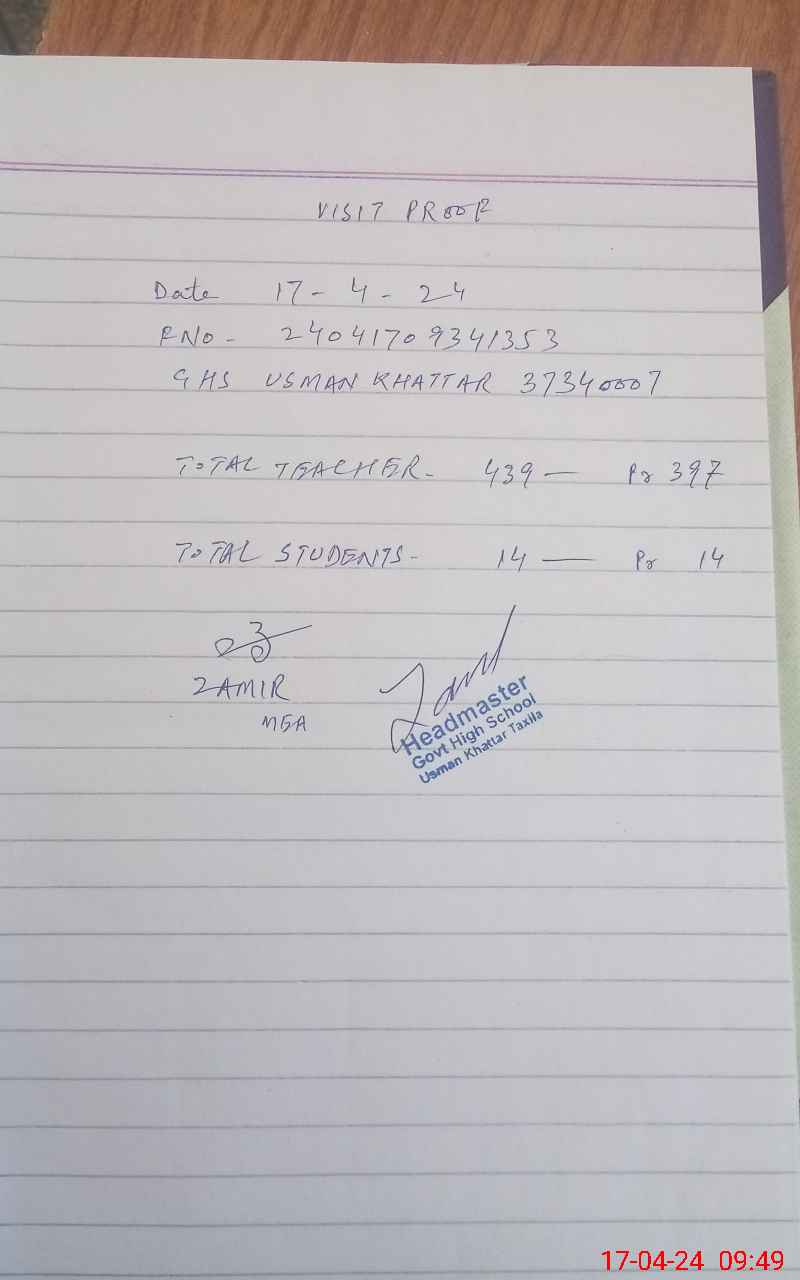 VISIT PROOF
Date 17-4-24
RNo- 24041709341353
GHS USMAN KHATTAR 37340007
TOTAL TEACHER- 439 — Pr 397
TOTAL STUDENTS- 14 — Pr 14
ZAMIR
MEA
Headmaster
Govt High School
Usman Khattar Taxila
17-04-24 09:49